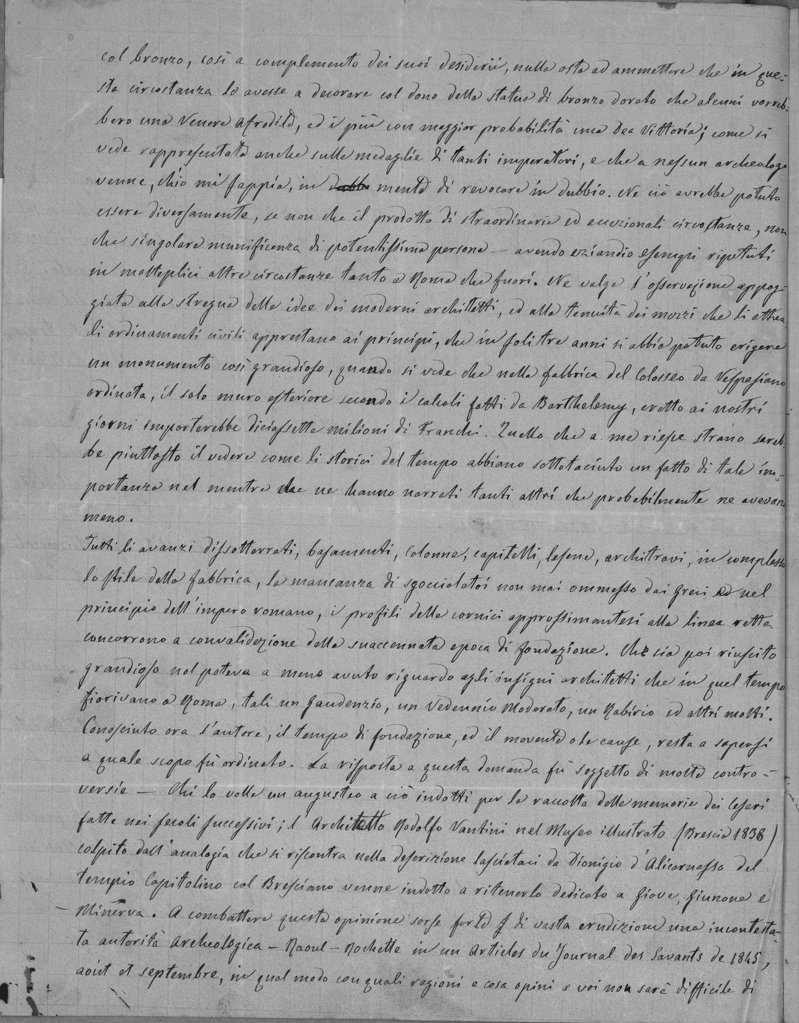 col bronzo, così a complemento dei suoi desiderii, nulla osta ad ammettere che in que-
sta circostanza lo avesse a decorare col dono della statua di bronzo dorato che alcuni vorreb-
bero una Venere Afrodite, ed i più con maggior probabilità una Dea Vittoria; come si
vede rappresentata anche sulle medaglie di tanti imperatori, e che a nessun archeologo
venne, ch'io mi sappia, in mente di revocare in dubbio. Ne ciò avrebbe potuto
essere diversamente, se non che il prodotto di straordinarie ed eccezionali circostanze, non
che singolare munificenza di potentissima persona — avendo eziandio esempi ripetuti
in molteplici altre circostanze tanto a Roma che fuori. Ne valga l'osservazione appog-
giata alla stregua delle idee dei moderni architetti, ed alla tenuità dei mezzi che li attua-
li ordinamenti civili apprestano ai principi, che in soli tre anni si abbia potuto erigere
un monumento così grandioso, quando si vede che nella fabbrica del Colosseo da Vespasiano
ordinata, il solo muro esteriore secondo i calcoli fatti da Barthelemy, eretto ai nostri
giorni importerebbe diciassette milioni di Franchi. Quello che a me riesce strano sareb-
be piuttosto il vedere come li storici del tempo abbiano sottotaciuto un fatto di tale im-
portanza nel mentre che ne hanno narrati tanti altri che probabilmente ne avevano
meno.
Tutti li avanzi dissotterrati, basamenti, colonne, capitelli, lesene, architravi, in complesso
lo stile della fabbrica, la mancanza di sgocciolatoi non mai ommesso dai Greci ed nel
principio dell'impero romano, i profili delle cornici approssimantesi alla linea retta
concorrono a convalidazione della suaccennata epoca di fondazione. Che sia poi riuscito
grandioso nol poteva a meno avuto riguardo agli insigni architetti che in quel tempo
fiorivano a Roma, tali un Gaudenzio, un Vedennio Moderato, un Rabirio ed altri molti.
Conosciuto ora l'autore, il tempo di fondazione, ed il movente o le cause, resta a sapersi
a quale scopo fù ordinato. La risposta a questa domanda fù soggetto di molte contro-
versie — Chi lo volle un augusteo a ciò indotti per la raccolta delle memorie dei Cesari
fatte nei secoli successivi; l'Architetto Rodolfo Vantini nel Museo illustrato (Brescia 1838)
colpito dall'analogia che si riscontra nella descrizione lasciataci da Dionigio d'Alicarnasso del
tempio Capitolino col Bresciano venne indotto a ritenerlo dedicato a Giove, Giunone e
Minerva. A combattere questa opinione sorse forte di vasta erudizione una incontesta-
ta autorità Archeologica — Raoul-Rochette in un Articles du Journal des Savants de 1845,
aoüt et septembre, in qual modo con quali ragioni e cosa opini a voi non sarà difficile di